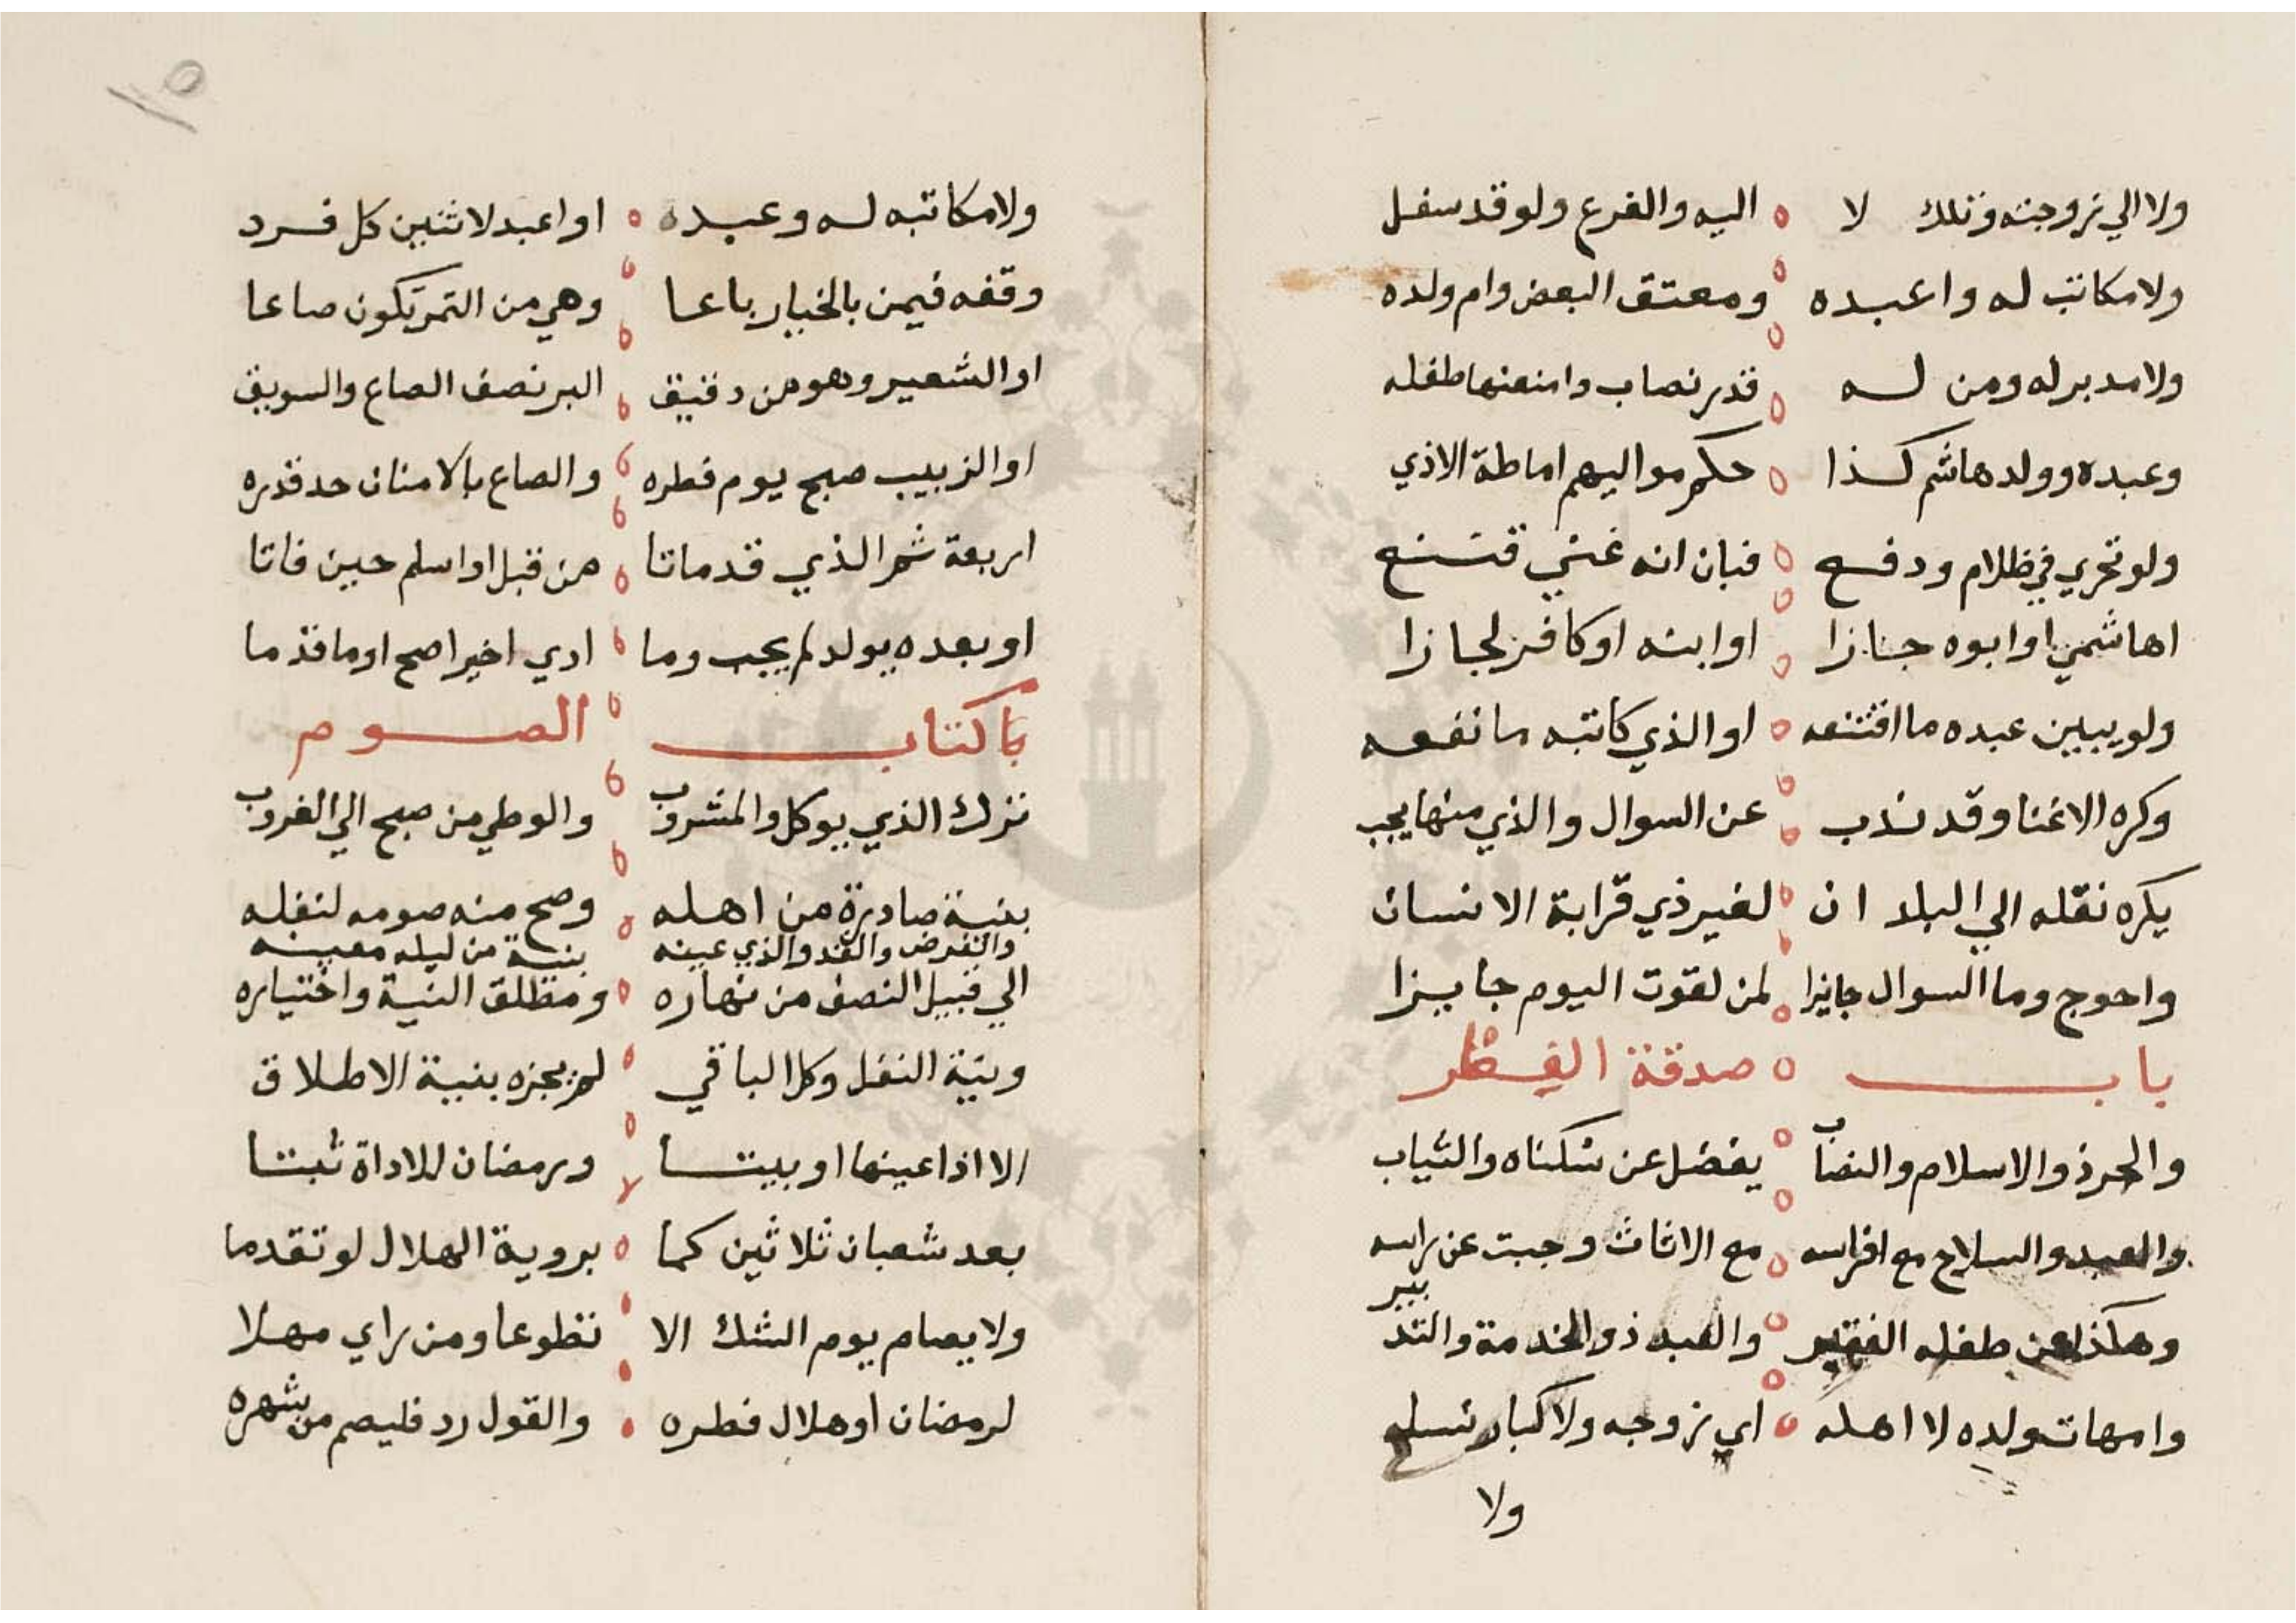 ولا الي زوجته وتلك لا اليه والفرع ولو قد سفل
ولا مكاتب له واعبده ومعتق البعض وام ولده
ولا مدبر له ومن له قدر نصاب وامنعنها طفله
وعبده وولد هاشم كذا حكم مواليهم اماطة الاذي
ولو تحري في ظلام ودفع فبان انه غني
اهاشمي او ابوه جازا او ابنه او كافر لجازا
ولو يبين عبده ما او الذي كاتبه ما نفعه
وكره الاغنا وقد ندب عن السوال والذي منها يجب
يكره نقله الي البلد ان لغير ذي قرابة الانسان
واحوج وما السوال جايزا لمن لقوت اليوم جايزا
باب صدقة الفطر
والحر ذو الاسلام والنصاب يفضل عن سكناه والثياب
والعبد والسلاح مع افراسه مع الاثاث وجبت عن راسه
وهكذا عن طفله الفقير والعبد ذو الخدمة والتدبير
وامهات ولده لا اهله اي زوجه ولا كبار نسله
ولا
١٥
ولا مكاتبه له وعبده او اعبد لاثنين كل فرد
وقفه فيمن بالخيار باعا وهي من التمر تكون صاعا
او الشعير وهو من دقيق البر نصف الصاع والسويق
او الزبيب صبح يوم فطره والصاع بالامنان حد قدره
اربعة ثم الذي قد ماتا من قبل او اسلم حين فاتا
او بعده يولد لم يجب وما ادي اخيرا صح او ما قدما
كتاب الصوم
ترك الذي يوكل والمشروب والوطي من صبح الي الغروب
بنية صادرة من اهله وصح منه صومه لنفله
والفرض والذي عينه بنية من ليله معينه
الي قبيل النصف من نهاره ومطلق النية واختياره
وبنية النفل وكل الباقي لم يجزه بنية الاطلاق
الا اذا عينها او بيتا ورمضان للاداة ثبتا
بعد شعبان ثلاثين كما بروية الهلال لو تقدما
ولا يصام يوم الشك الا تطوعا ومن راي مهلا
لرمضان او هلال فطره والقول رد فليصم من شهره